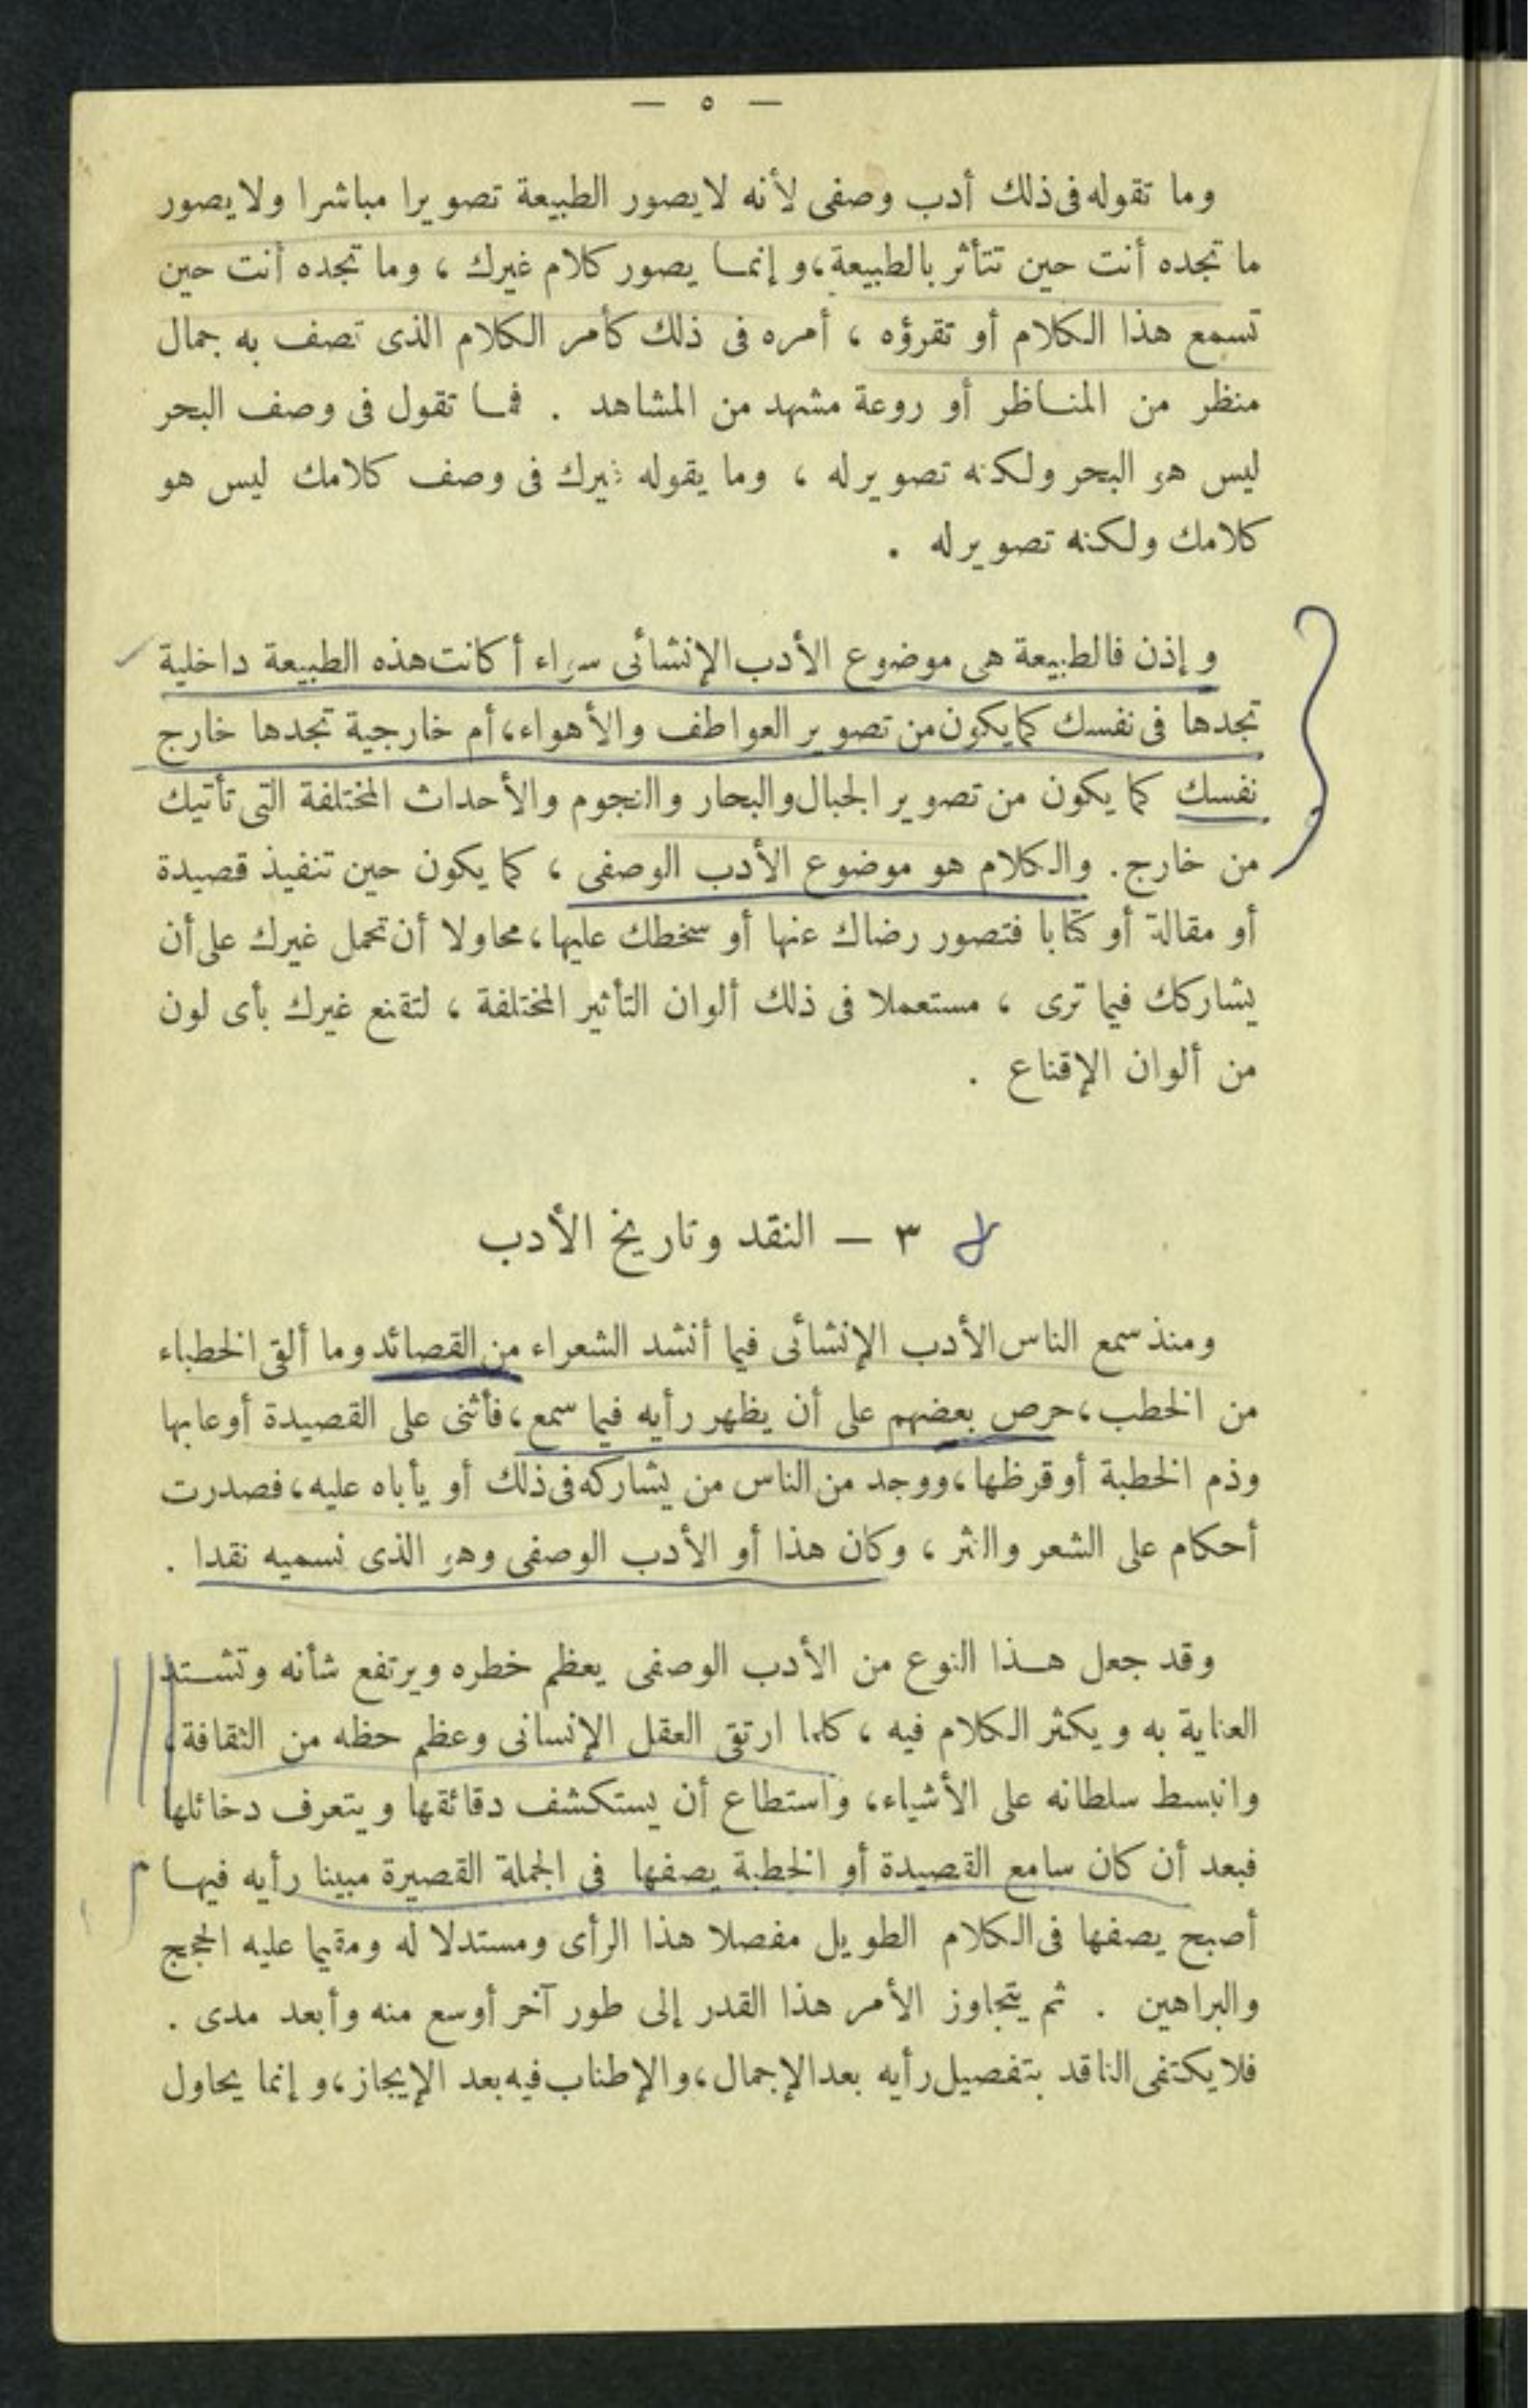 — ٥ —
وما تقوله فى ذلك أدب وصفى لأنه لا يصور الطبيعة تصويرا مباشرا ولا يصور
ما تجده أنت حين تتأثر بالطبيعة، وإنما يصور كلام غيرك ، وما تجده أنت حين
تسمع هذا الكلام أو تقرؤه ، أمره فى ذلك كأمر الكلام الذى تصف به جمال
منظر من المناظر أو روعة مشهد من المشاهد . فما تقول فى وصف البحر
ليس هو البحر ولكنه تصوير له ، وما يقوله غيرك فى وصف كلامك ليس هو
كلامك ولكنه تصوير له .
وإذن فالطبيعة هى موضوع الأدب الإنشائى سواء أكانت هذه الطبيعة داخلية
تجدها فى نفسك كما يكون من تصوير العواطف والأهواء، أم خارجية تجدها خارج
نفسك كما يكون من تصوير الجبال والبحار والنجوم والأحداث المختلفة التى تأتيك
من خارج. والكلام هو موضوع الأدب الوصفى ، كما يكون حين تنفيذ قصيدة
أو مقالة أو كتابا فتصور رضاك عنها أو سخطك عليها، محاولا أن تحمل غيرك على أن
يشاركك فيما ترى ، مستعملا فى ذلك ألوان التأثير المختلفة ، لتقنع غيرك بأى لون
من ألوان الإقناع .
٣ — النقد وتاريخ الأدب
ومنذ سمع الناس الأدب الإنشائى فيما أنشد الشعراء من القصائد وما ألقى الخطباء
من الخطب، حرص بعضهم على أن يظهر رأيه فيما سمع، فأثنى على القصيدة أو عابها
وذم الخطبة أو قرظها، ووجد من الناس من يشاركه فى ذلك أو يأباه عليه، فصدرت
أحكام على الشعر والنثر ، وكان هذا أو الأدب الوصفى وهو الذى نسميه نقدا .
وقد جعل هذا النوع من الأدب الوصفى يعظم خطره ويرتفع شأنه وتشتد
العناية به ويكثر الكلام فيه ، كلما ارتقى العقل الإنسانى وعظم حظه من الثقافة،
وانبسط سلطانه على الأشياء، واستطاع أن يستكشف دقائقها ويتعرف دخائلها
فبعد أن كان سامع القصيدة أو الخطبة يصفها فى الجملة القصيرة مبينا رأيه فيها
أصبح يصفها فى الكلام الطويل مفصلا هذا الرأى ومستدلا له ومقيما عليه الحجج
والبراهين . ثم يتجاوز الأمر هذا القدر إلى طور آخر أوسع منه وأبعد مدى .
فلا يكتفى الناقد بتفصيل رأيه بعد الإجمال، والإطناب فيه بعد الإيجاز، وإنما يحاول